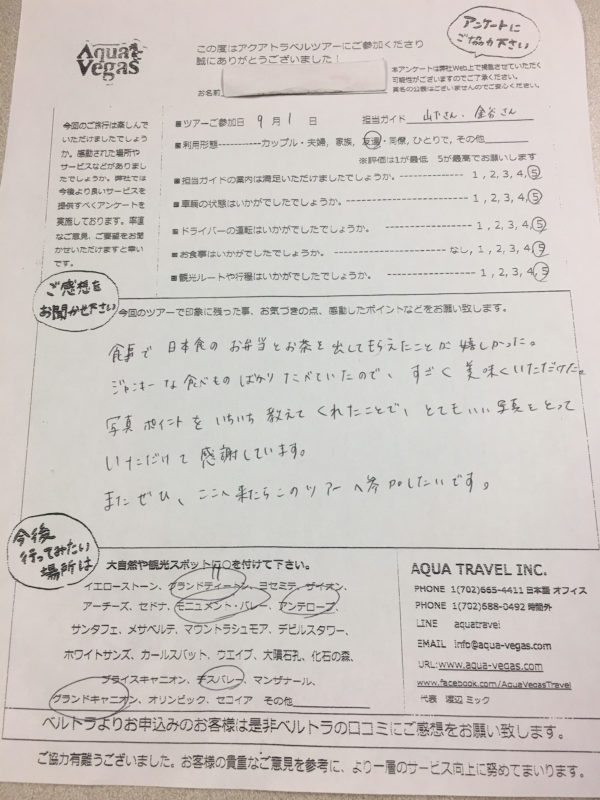 Aqua Vegas
この度はアクアトラベルツアーにご参加くださり
誠にありがとうございました！
アンケートに
ご協力下さい
本アンケートは弊社Web上で掲載させていただく
可能性がございますのでご了承ください。
実名の公表はございませんのでご安心ください。
お名前
今回のご旅行は楽しんで
いただけましたでしょう
か。感動された場所や
サービスなどがありまし
たでしょうか。弊社では
今後より良いサービスを
提供すべくアンケートを
実施しております。率直
なご意見、ご要望をお聞
かせいただけますと幸い
です。
■ツアーご参加日 9月1日 担当ガイド 山下さん、金谷さん
■利用形態-----------カップル・夫婦, 家族, 友達・同僚, ひとりで, その他
※評価は1が最低 5が最高でお願いします
■担当ガイドの案内は満足いただけましたでしょうか。--------------- 1, 2, 3, 4, 5
■車輌の状態はいかがでしたでしょうか。--------------- 1, 2, 3, 4, 5
■ドライバーの運転はいかがでしたでしょうか。--------------- 1, 2, 3, 4, 5
■お食事はいかがでしたでしょうか。--------------- なし, 1, 2, 3, 4, 5
■観光ルートや行程はいかがでしたでしょうか。--------------- 1, 2, 3, 4, 5
ご感想を
お聞かせ下さい
今回のツアーで印象に残った事、お気づきの点、感動したポイントなどをお願い致します。
食事で日本食のお弁当とお茶を出してもらえたことが嬉しかった。
ジャンキーな食べものばかりたべていたので、すごく美味くいただけた。
写真ポイントをいちいち教えてくれたことで、とてもいい写真をとって
いただけて感謝しています。
またぜひ、ここへ来たらこのツアーへ参加したいです。
今後
行ってみたい
場所は
大自然や観光スポットに○を付けて下さい。
イエローストーン、グランドティートン、ヨセミテ、ザイオン、
アーチーズ、セドナ、モニュメント・バレー、アンテロープ、
サンタフェ、メサベルデ、マウントラシュモア、デビルスタワー、
ホワイトサンズ、カールスバット、ウエイブ、大隕石孔、化石の森、
ブライスキャニオン、デスバレー、マンザナール、
グランドキャニオン、オリンピック、セコイア その他
AQUA TRAVEL INC.
PHONE 1(702)665-4411 日本語 オフィス
PHONE 1(702)688-0492 時間外
LINE aquatravel
EMAIL info@aqua-vegas.com
URL:www.aqua-vegas.com
www.facebook.com/AquaVegasTravel
代表 渡辺 ミック
ベルトラよりお申込みのお客様は是非ベルトラの口コミにご感想をお願い致します。
ご協力有難うございました。お客様の貴重なご意見を参考に、より一層のサービス向上に努めてまいります。